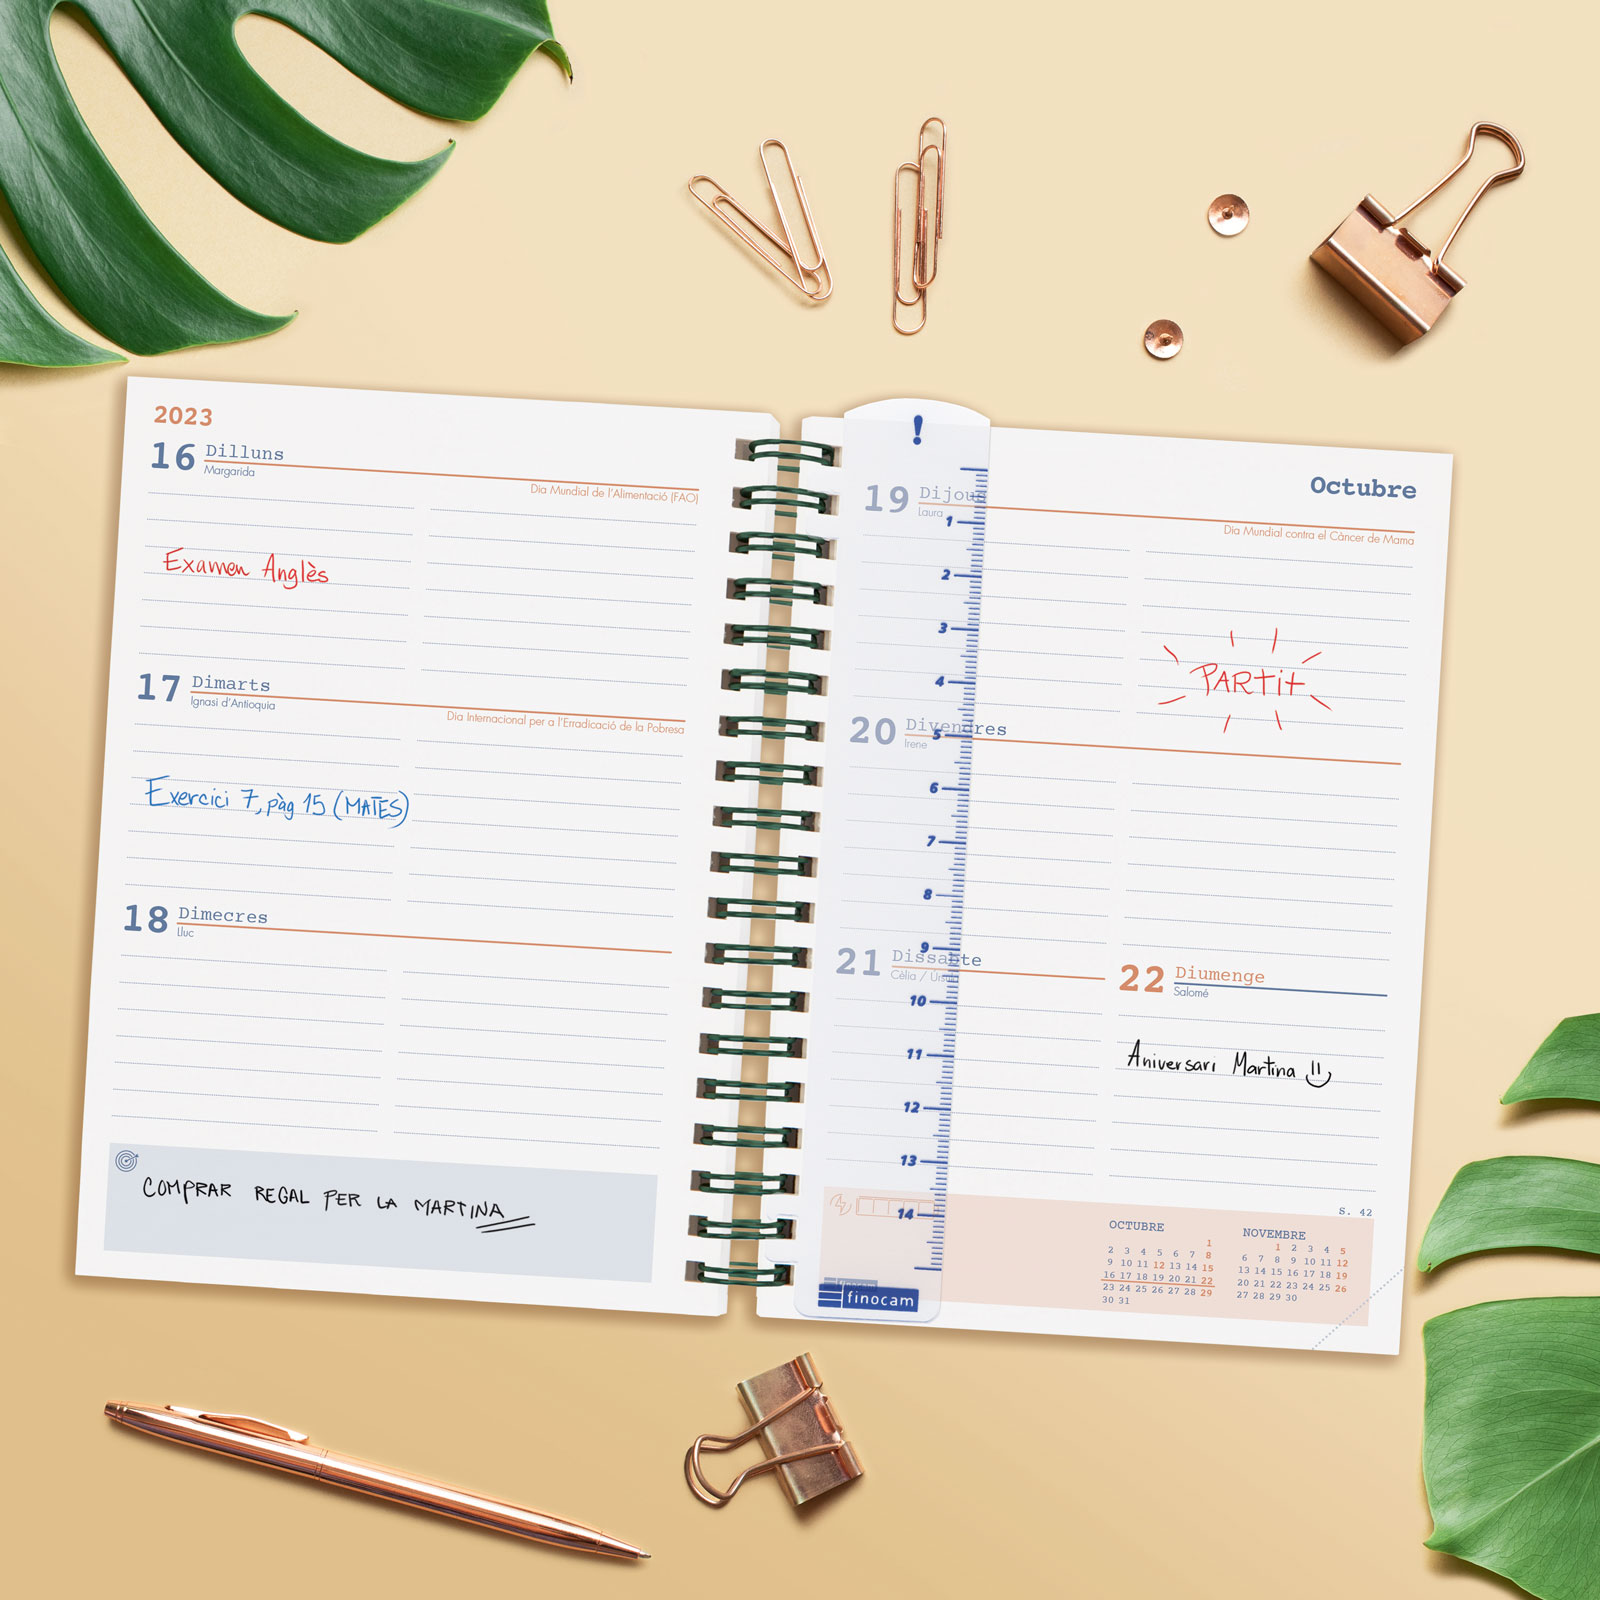 2023
16 Dilluns
Margarida
Dia Mundial de l'Alimentació (FAO)
Examen Anglès
17 Dimarts
Ignasi d'Antioquia
Dia Internacional per a l'Erradicació de la Pobresa
Exercici 7, pàg 15 (MATES)
18 Dimecres
Lluc
COMPRAR REGAL PER LA MARTINA
!
Octubre
19 Dijous
Laura
Dia Mundial contra el Càncer de Mama
PARTIT
20 Divendres
Irene
21 Dissabte
Cèlia /
22 Diumenge
Salomé
Aniversari Martina
1
2
3
4
5
6
7
8
9
10
11
12
13
14
finocam
S. 42
OCTUBRE
1
2 3 4 5 6 7 8
9 10 11 12 13 14 15
16 17 18 19 20 21 22
23 24 25 26 27 28 29
30 31
NOVEMBRE
1 2 3 4 5
6 7 8 9 10 11 12
13 14 15 16 17 18 19
20 21 22 23 24 25 26
27 28 29 30